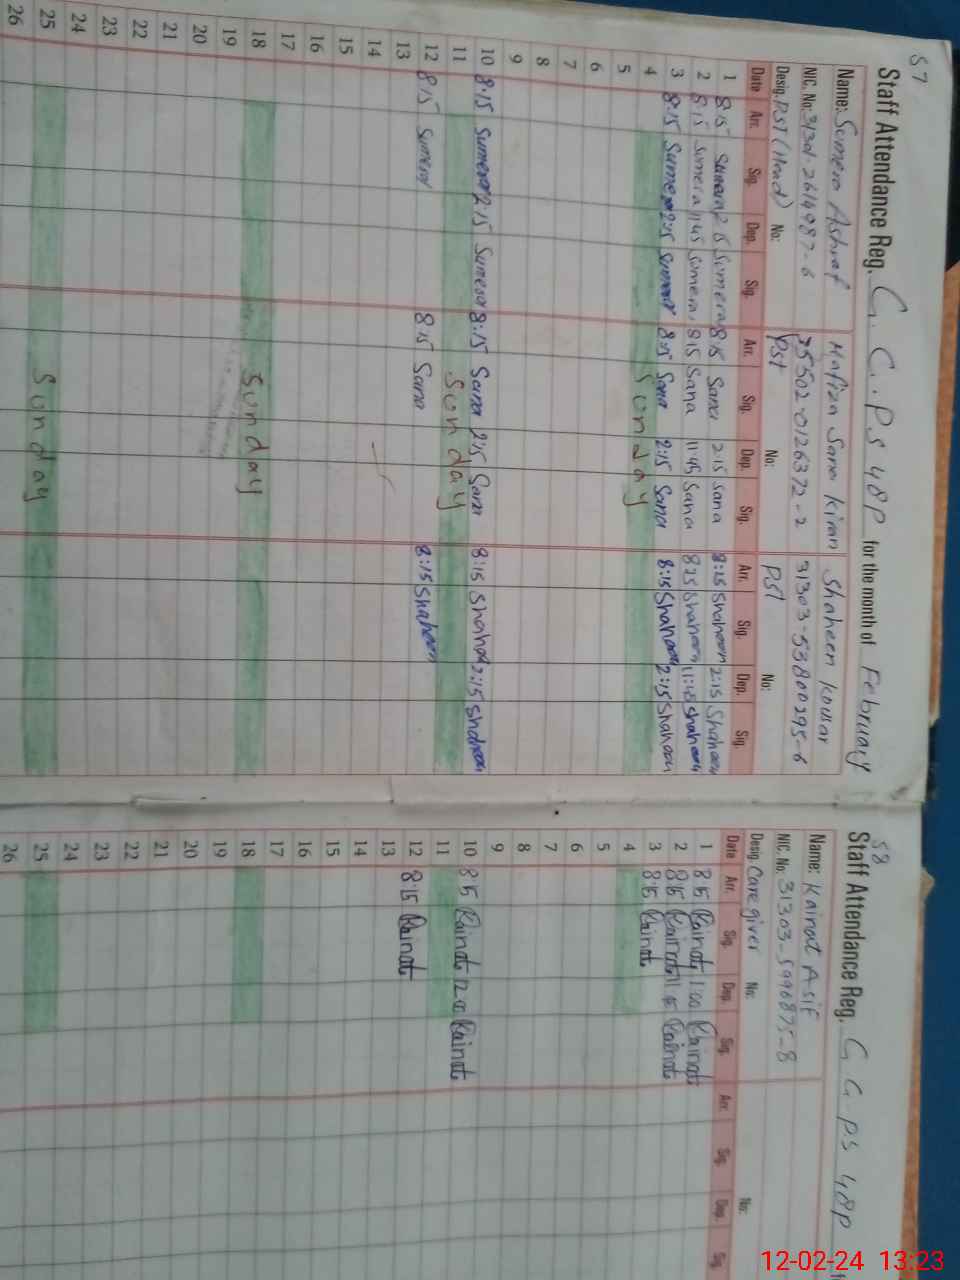 57
Staff Attendance Reg. G. G. PS 48P for the month of February
Name: Sumera Ashraf Hafiza Sana Kiran Shaheen Kousar
NIC. No: 31301-2614987-6 35502-0126372-2 31303-53800295-6
Desig. PST (Head) No: Pst No: PST No:
Date Arr. Sig. Dep. Sig. Arr. Sig. Dep. Sig. Arr. Sig. Dep. Sig.
1 8:15 Sumera 2:15 Sumera 8:15 Sana 2:15 Sana 8:15 Shaheen 2:15 Shaheen
2 8:15 Sumera 11:45 Sumera 8:15 Sana 11:45 Sana 8:15 Shaheen 11:45 Shaheen
3 8:15 Sumera 2:15 Sumera 8:15 Sana 2:15 Sana 8:15 Shaheen 2:15 Shaheen
4 Sunday
5
6
7
8
9
10 8:15 Sumera 2:15 Sumera 8:15 Sana 2:15 Sana 8:15 Shaheen 2:15 Shaheen
11 Sunday
12 8:15 Sumera 8:15 Sana 8:15 Shaheen
13
14
15
16
17
18 Sunday
19
20
21
22
23
24
25 Sunday
26
58
Staff Attendance Reg. G G PS 48P
Name: Kainat Asif
NIC. No. 31303-5996875-8
Desig. Care giver No: No:
Date Arr. Sig. Dep. Sig. Arr. Sig. Dep. Sig.
1 8:15 Kainat 1:00 Kainat
2 8:15 Kainat Kainat
3 8:15 Kainat
4
5
6
7
8
9
10 8:15 Kainat 12:00 Kainat
11
12 8:15 Kainat
13
14
15
16
17
18
19
20
21
22
23
24
25
26
12-02-24 13:23